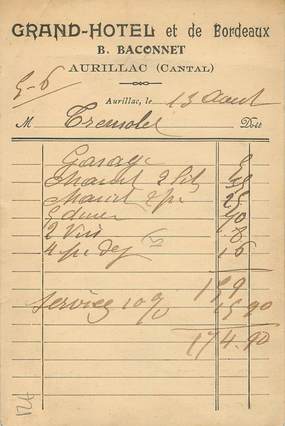 GRAND-HOTEL et de Bordeaux
B. BACONNET
AURILLAC (CANTAL)
5-6
Aurillac, le 13 Aout
M Tremolet Doit
Garage 8
2 lit
25
5 diner 90
2 Vin 8
4 pt dej 16
159
Service 10% 15.90
174.90